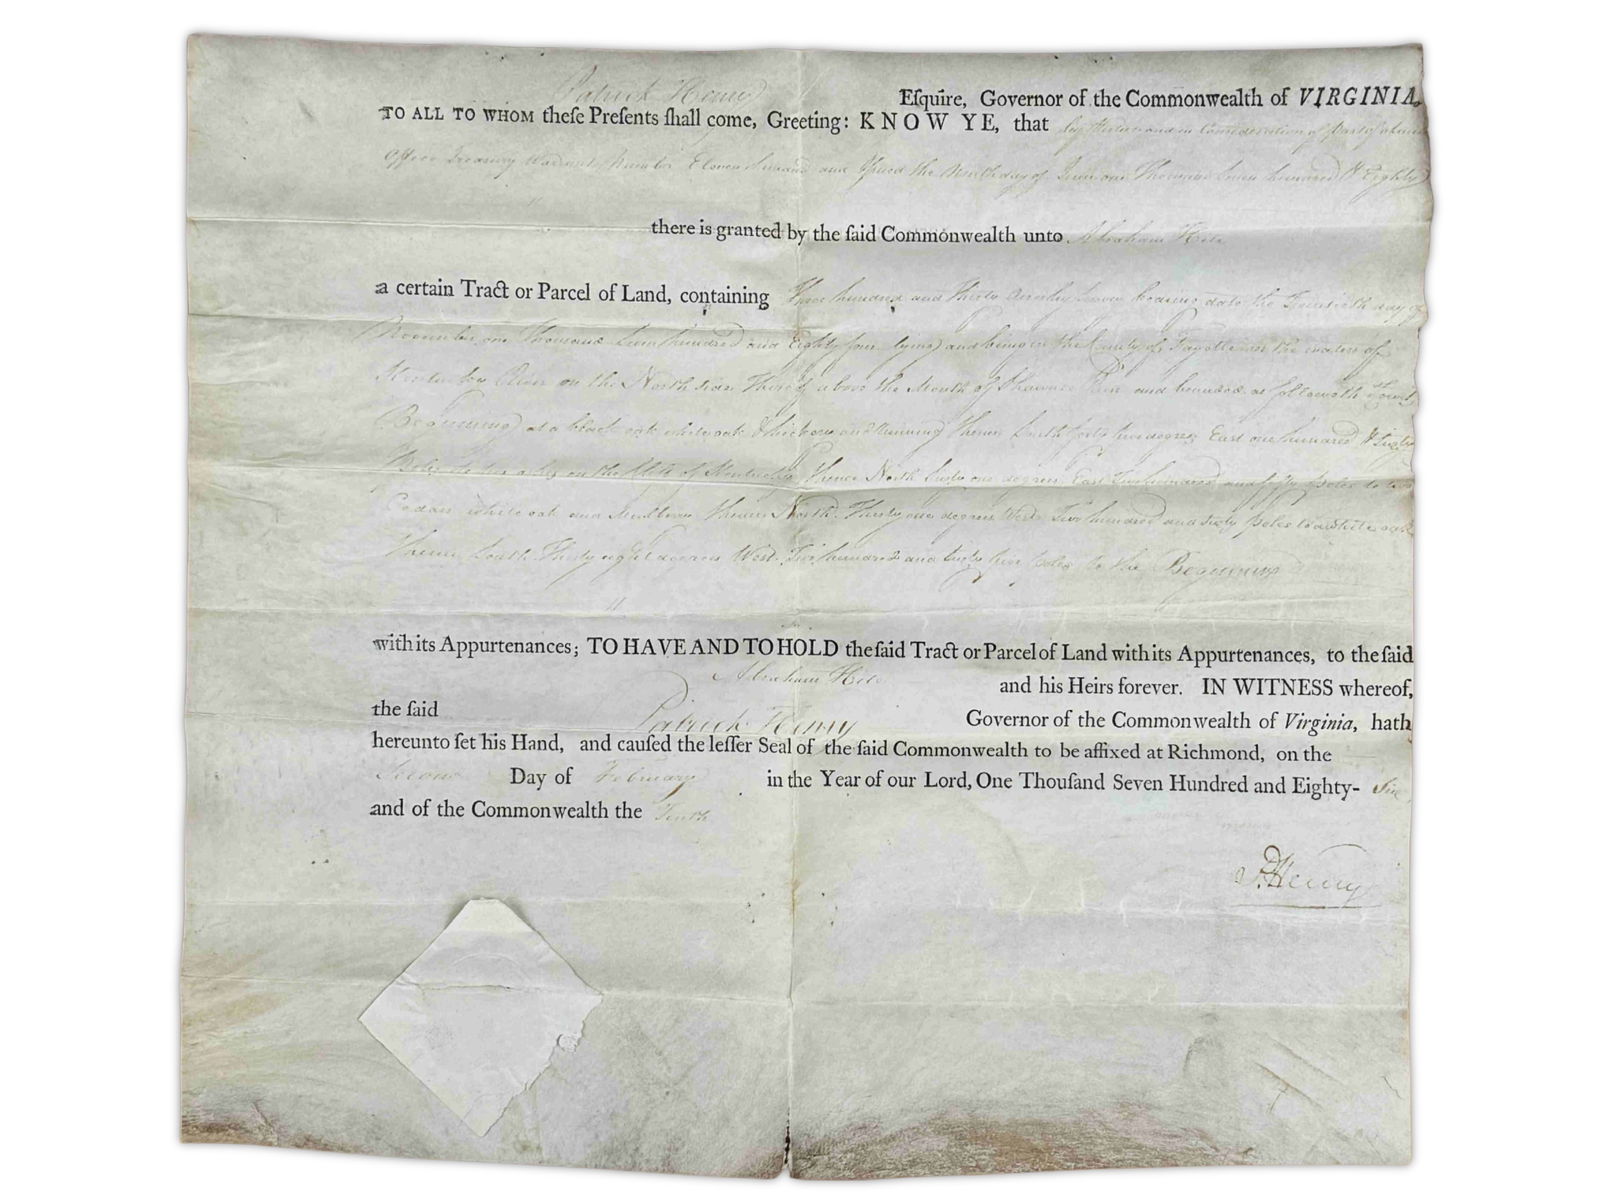 Patrick Henry Eſquire, Governor of the Commonwealth of VIRGINIA,
TO ALL TO WHOM theſe Preſents ſhall come, Greeting: KNOW YE, that by Virtue and in Consideration of part of a Land
Office Treasury Warrant Number Eleven and Issued the day of June one Thousand Seven hundred & Eighty
there is granted by the ſaid Commonwealth unto Abraham Hite
a certain Tract or Parcel of Land, containing Three hundred and Thirty Acres by Survey bearing date the Twentieth day of
November one Thousand Seven hundred and Eighty four lying and being in the County of Fayette on the waters of
Kentucky River on the North side Thereof above the Mouth of Shawnee Run and bounded as followeth to wit,
Beginning at a black oak white oak & hickory and Running Thence South forty degrees East one hundred & Sixty
Poles to on the of Kentucky Thence North one degrees East Two hundred and fifty poles to two
Cedars white oak and Thence North Thirty one degrees West Two hundred and sixty poles to a white oak
Thence South Thirty eight degrees West Two hundred and poles to the Beginning
with its Appurtenances; TO HAVE AND TO HOLD the ſaid Tract or Parcel of Land with its Appurtenances, to the ſaid
Abraham Hite and his Heirs forever. IN WITNESS whereof,
the ſaid Patrick Henry Governor of the Commonwealth of Virginia, hath
hereunto ſet his Hand, and cauſed the leſſer Seal of the ſaid Commonwealth to be affixed at Richmond, on the
Second Day of February in the Year of our Lord, One Thouſand Seven Hundred and Eighty- Six
and of the Commonwealth the Tenth
P. Henry